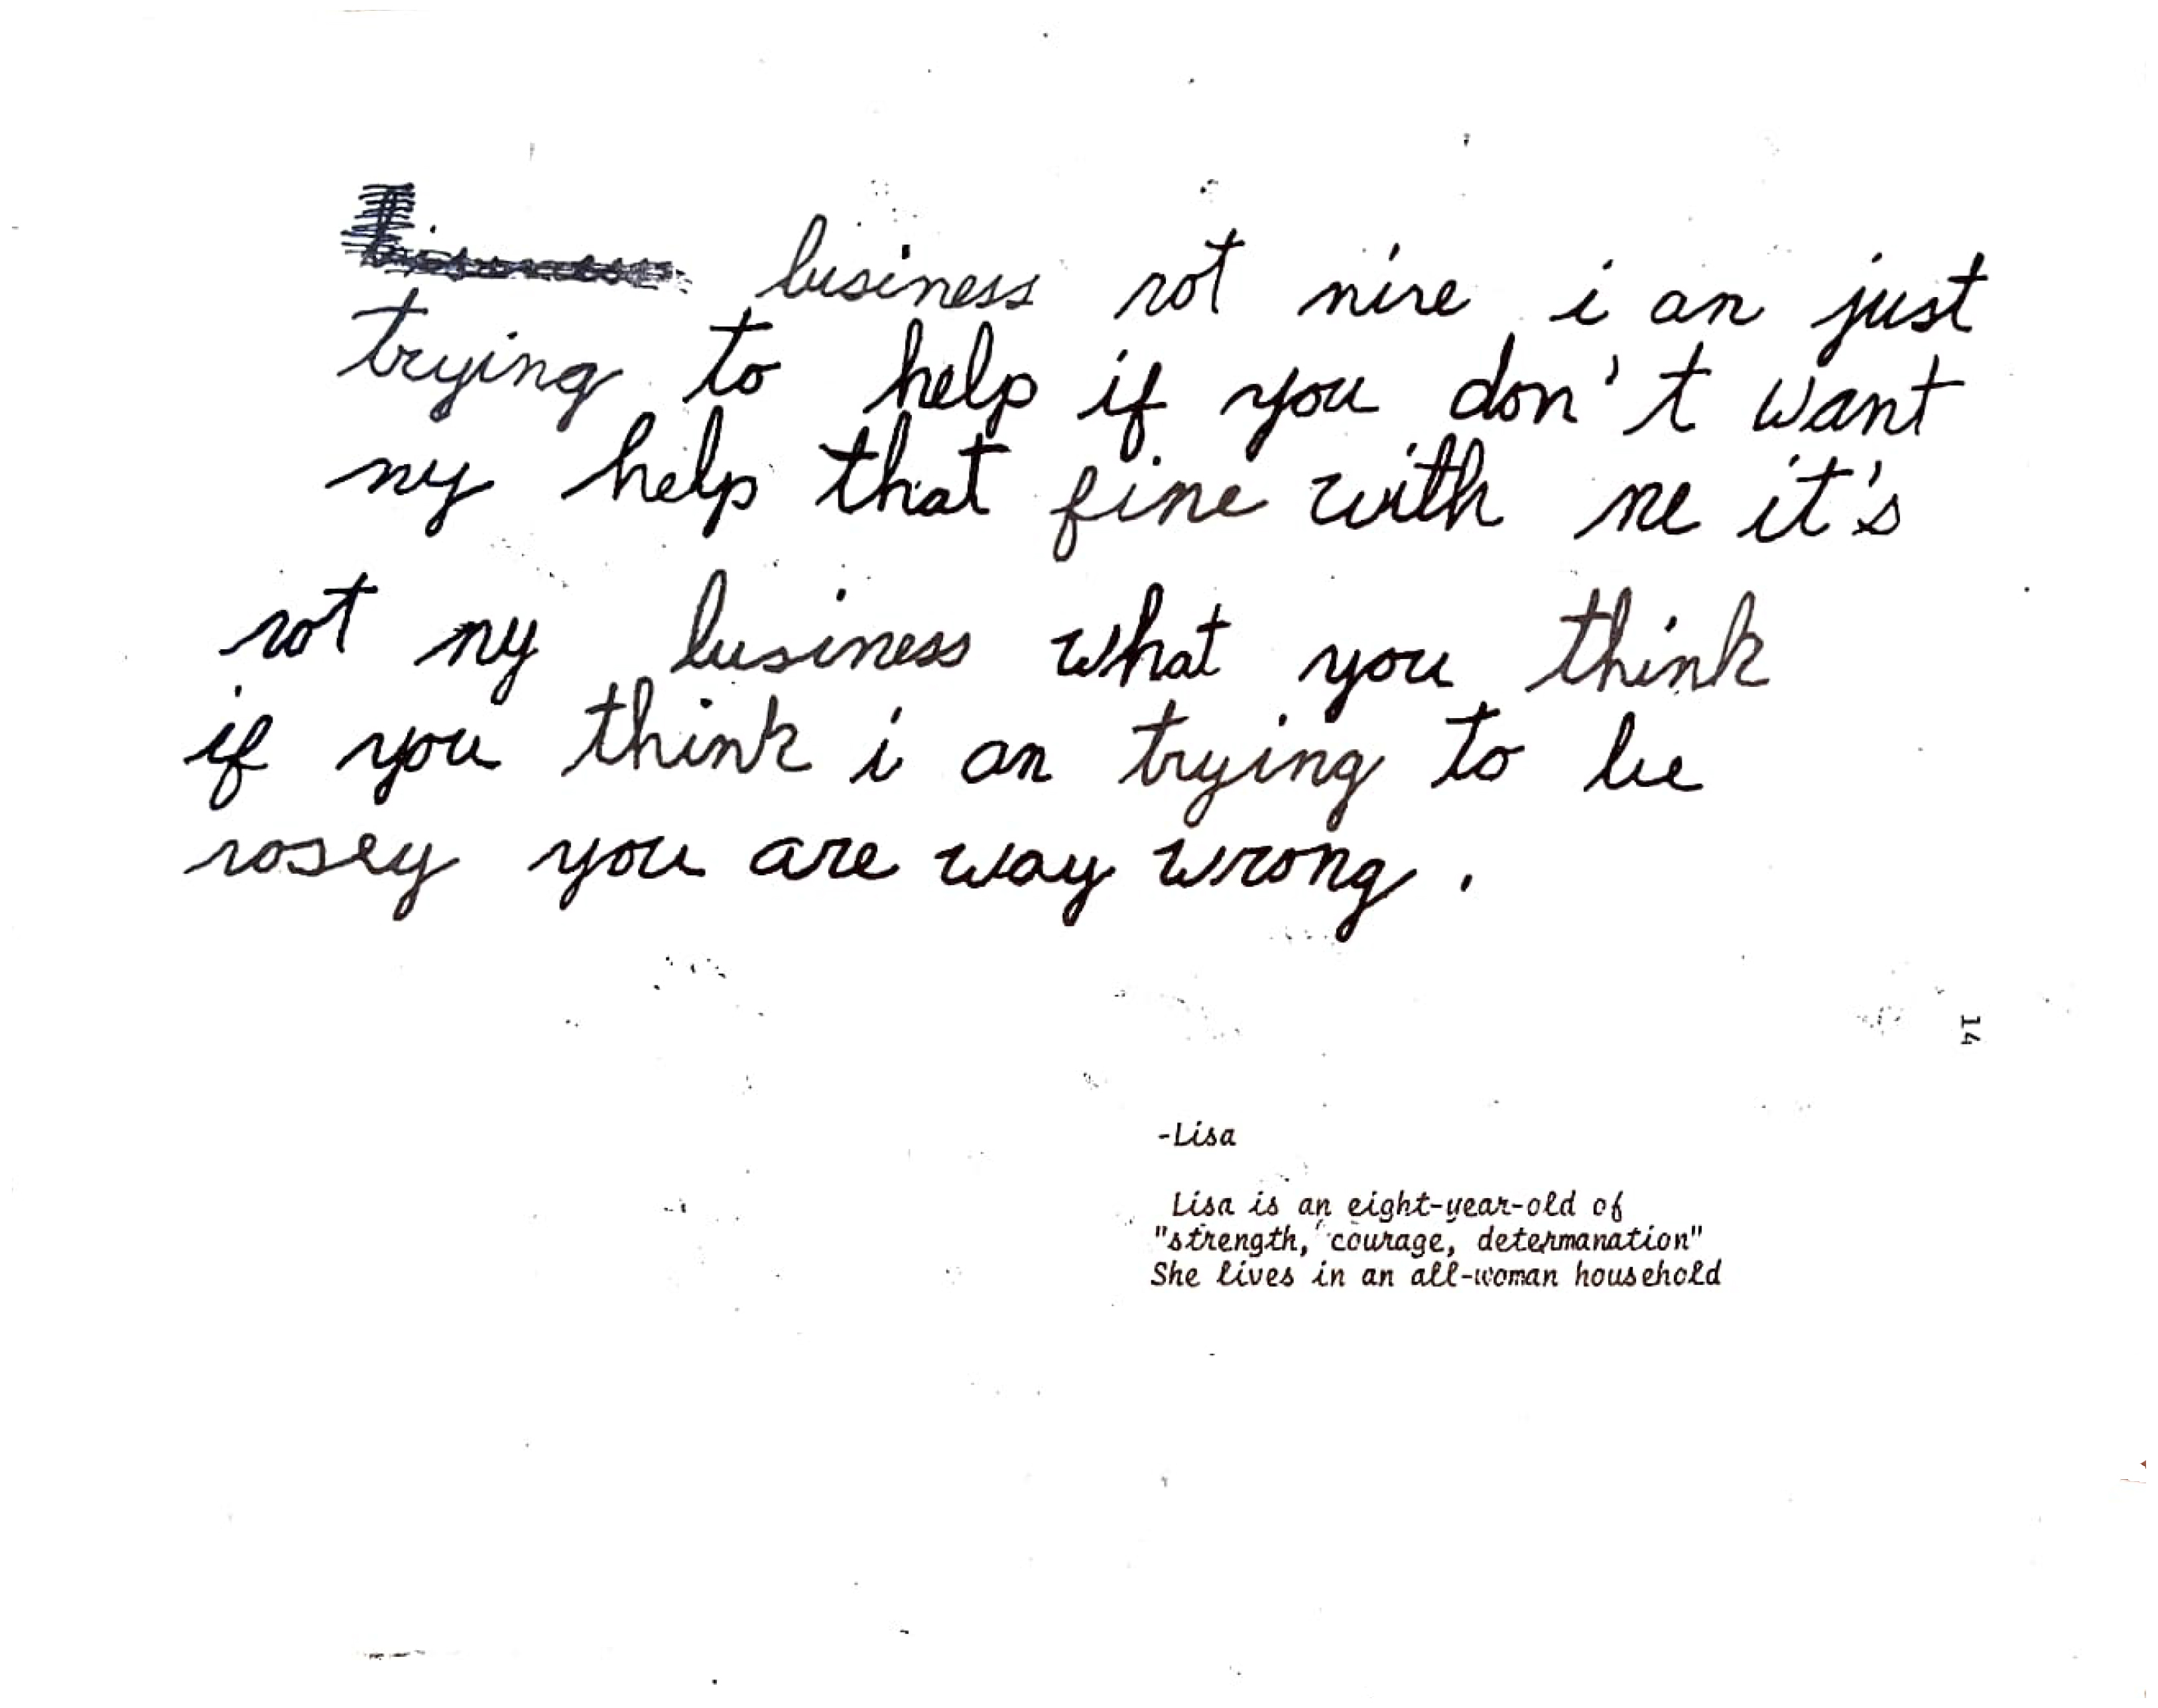 business not mine i am just
trying to help if you don't want
my help that fine with me it's
not my business what you think
if you think i am trying to be
nosey you are way wrong.
14
-Lisa
Lisa is an eight-year-old of
"strength, courage, determanation"
She lives in an all-woman household